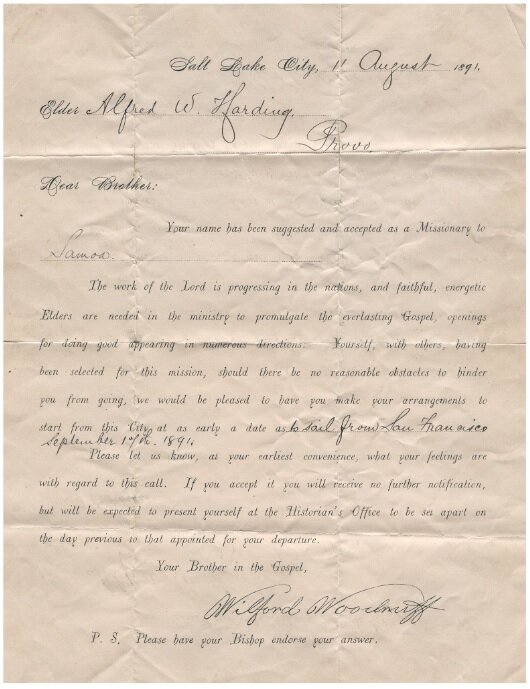 Salt Lake City, 11 August 1891.
Elder Alfred W. Harding.
Provo.
Dear Brother:
Your name has been suggested and accepted as a Missionary to
Samoa.
The work of the Lord is progressing in the nations, and faithful, energetic
Elders are needed in the ministry to promulgate the everlasting Gospel, openings
for doing good appearing in numerous directions. Yourself, with others, having
been selected for this mission, should there be no reasonable obstacles to hinder
you from going, we would be pleased to have you make your arrangements to
start from this City at as early a date as to sail from San Francisco
September 17th. 1891.
Please let us know, at your earliest convenience, what your feelings are
with regard to this call. If you accept it you will receive no further notification,
but will be expected to present yourself at the Historian's Office to be set apart on
the day previous to that appointed for your departure.
Your Brother in the Gospel,
Wilford Woodruff
P. S. Please have your Bishop endorse your answer.